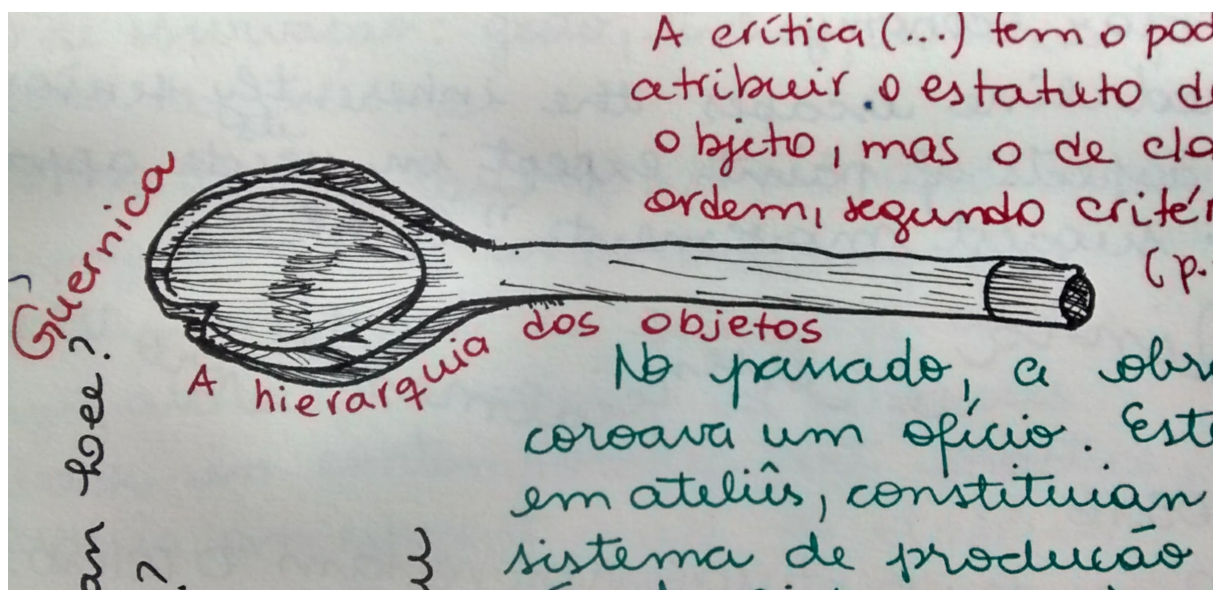 A crítica (...) tem o pod
atribuir o estatuto d
objeto, mas o de cla
ordem, segundo critér
(p.
Guernica
A hierarquia dos objetos
No passado, a obr
coroava um ofício. Este
em ateliês, constituian
sistema de produção
an hoee?
?